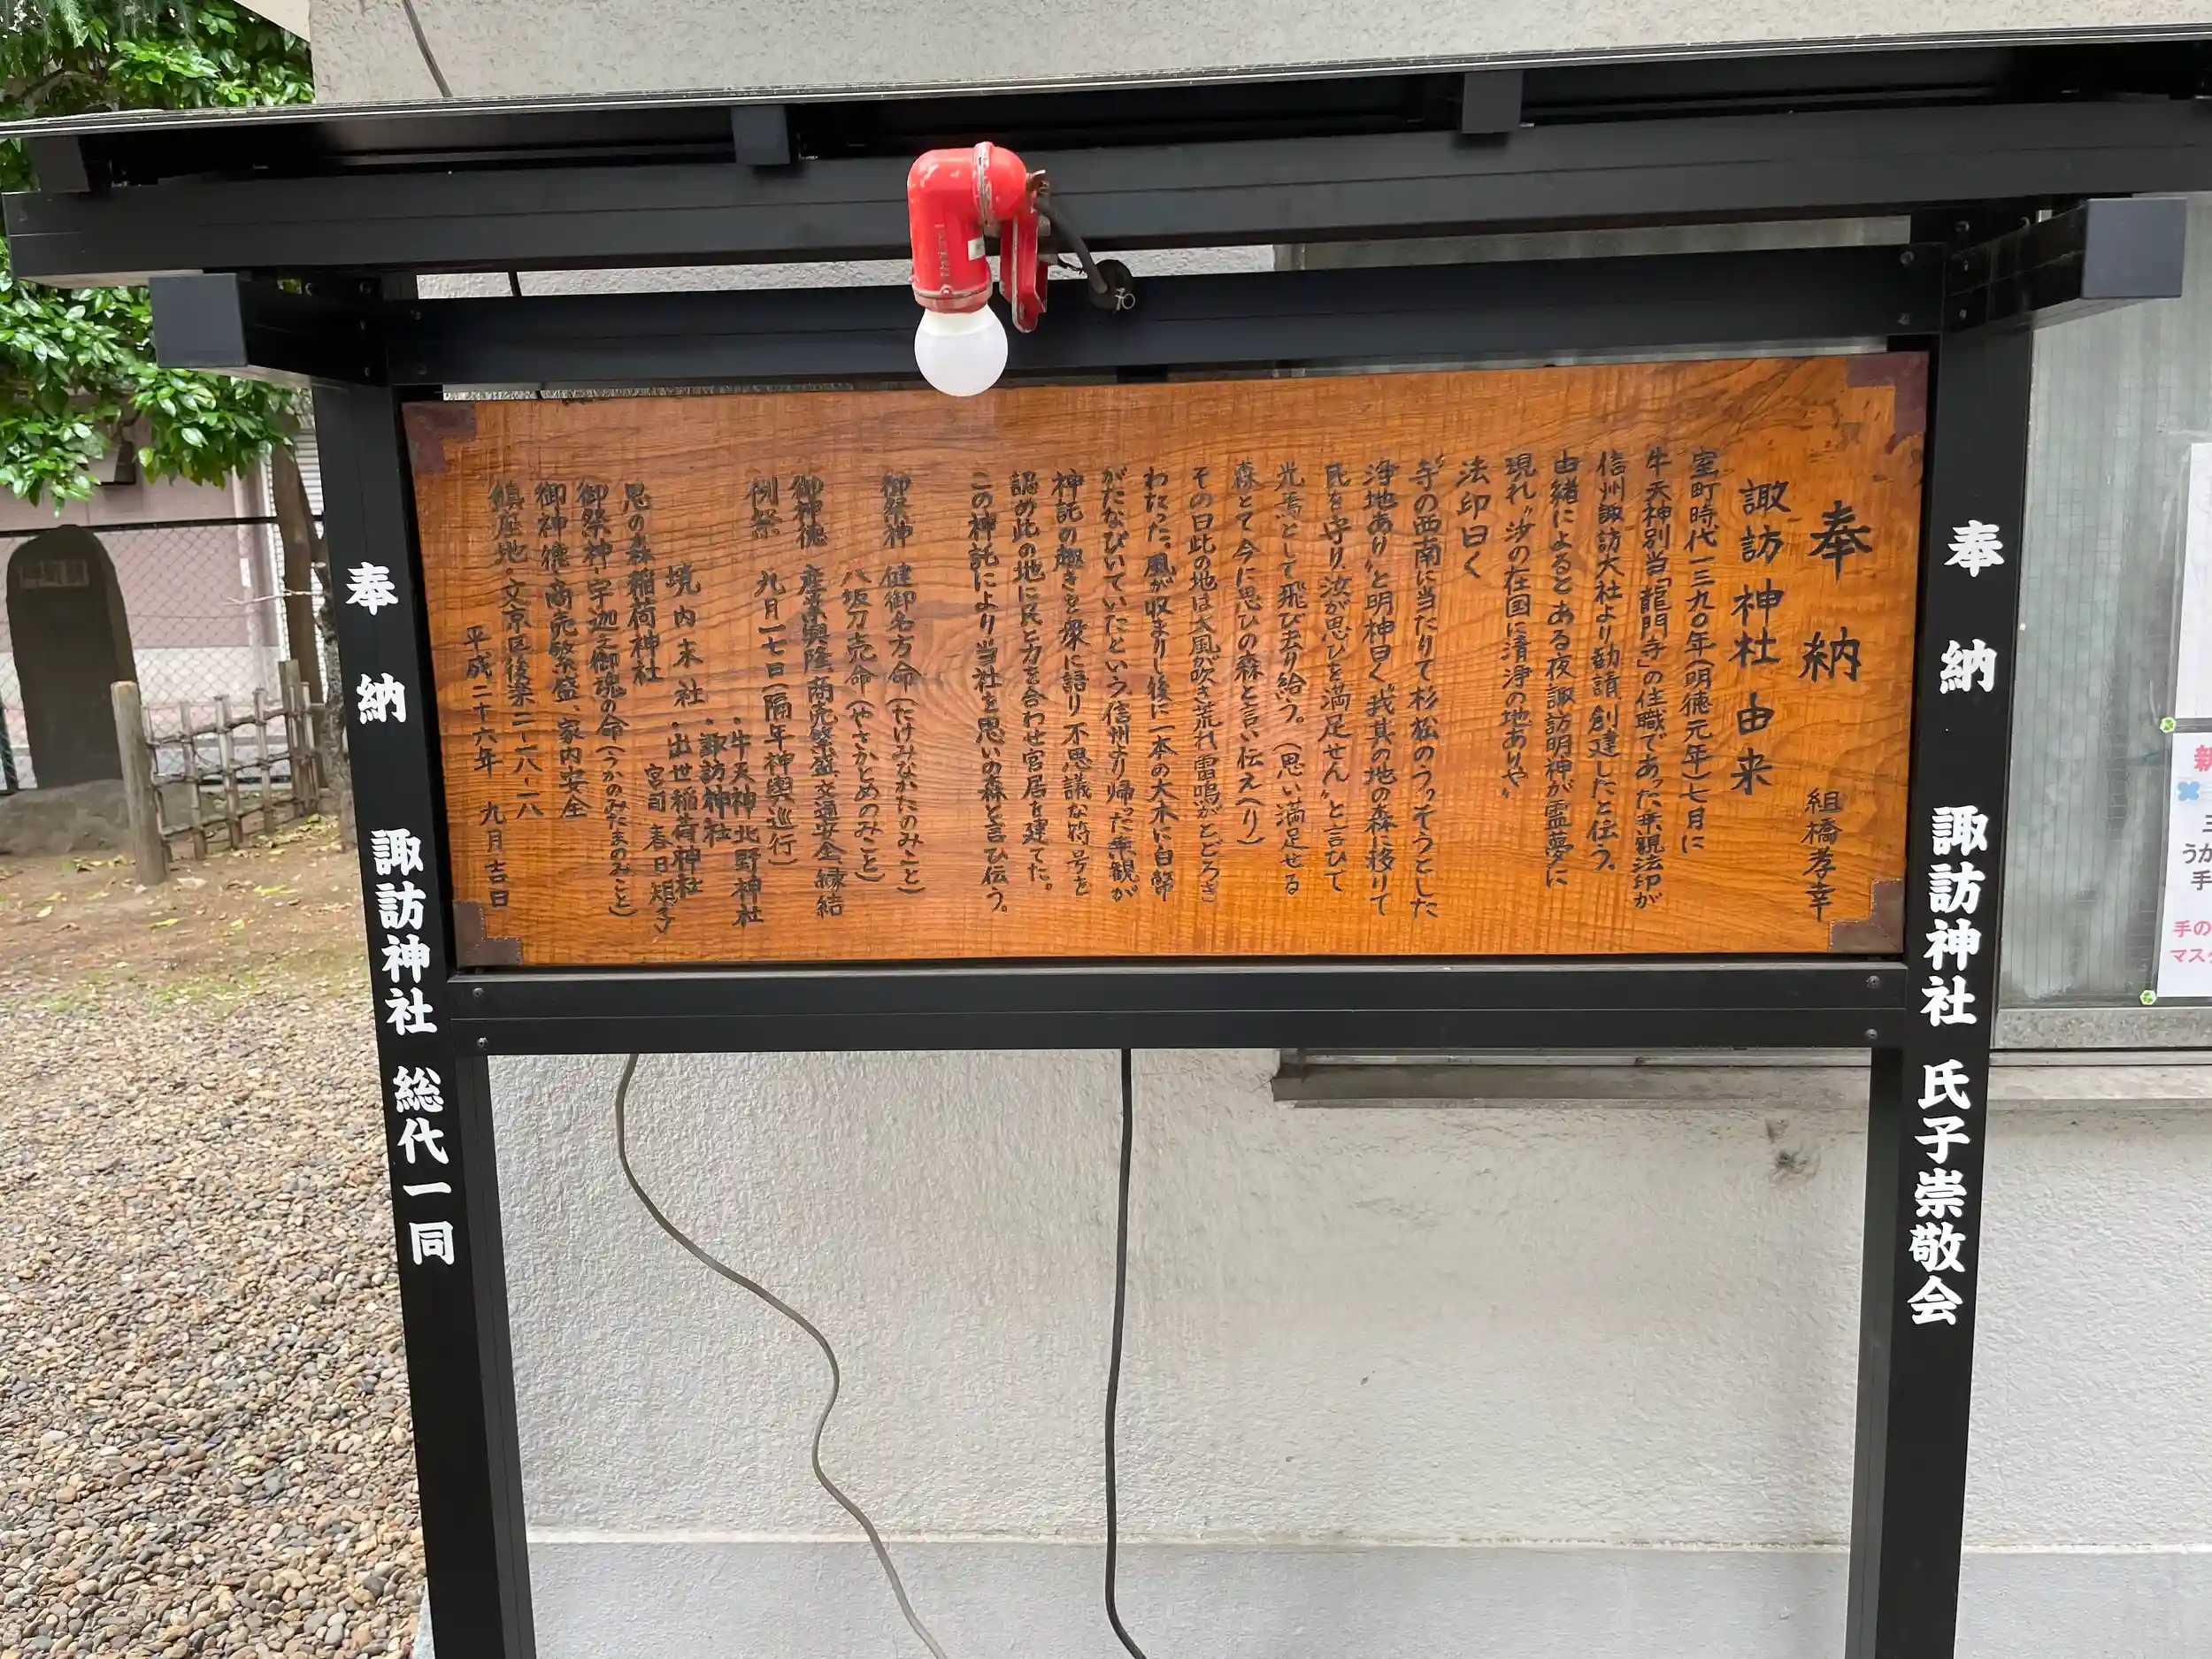 奉納 諏訪神社 氏子崇敬会
奉納 組橋孝幸
諏訪神社由来
室町時代一三九〇年(明徳元年)七月に
牛天神別当「龍門寺」の住職であった乗観法印が
信州諏訪大社より勧請、創建したと伝う。
由緒によると ある夜諏訪明神が霊夢に
現れ〝沙の在国に清浄の地ありや〟
法印曰く
〝寺の西南に当たりて杉松のうっそうとした
浄地あり〟と明神曰く〝我其の地の森に移りて
氏を守り、汝が思ひを満足せん〟と言ひて
光焉として飛び去り給う。(思い満足せる
森とて今に思ひの森と言い伝えへり)
その日此の地は大風が吹き荒れ、雷鳴がとどろき
わたった。風が収まりし後に一本の大木に白幣
がたなびいていたという、信州より帰った乗観が
神託の趣きを衆に語り 不思議な符号を
認め此の地に民と力を合わせ宮居を建てた。
この神託により当社を思いの森と言ひ伝う。
御祭神 健御名方命(たけみなかたのみこと)
八坂刀売命(やさかとめのみこと)
御神徳 産業興隆、商売繁盛、交通安全、縁結
例祭 九月二七日(隔年神輿巡行)
・牛天神北野神社
・諏訪神社
境内末社・出世稲荷神社
宮司 春日
思の森稲荷神社
御祭神 宇迦之御魂の命(うかのみたまのみこと)
御神徳 商売繁盛、家内安全
鎮座地・文京区後楽二-一八-一八
平成二十六年 九月吉日
奉納 諏訪神社 総代一同
手の
マスク